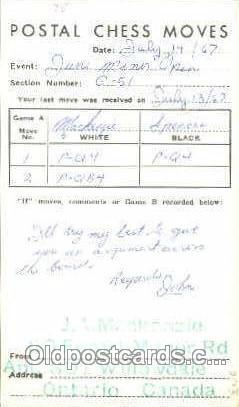 POSTAL CHESS MOVES
Date: July 14/67
Event: Open
Section Number: C-51
Your last move was received on July 13/67
Game A Mackenzie Spencer
Move No. WHITE BLACK
1 P-Q4 P-Q4
2 P-QB4
"If" moves, comments or Game B recorded below:
I'll try my best to give
you an argument across
the board.
John
J. Mackenzie
Rd
From
Oldpostcards.com
Address Willowdale
Ontario, Canada